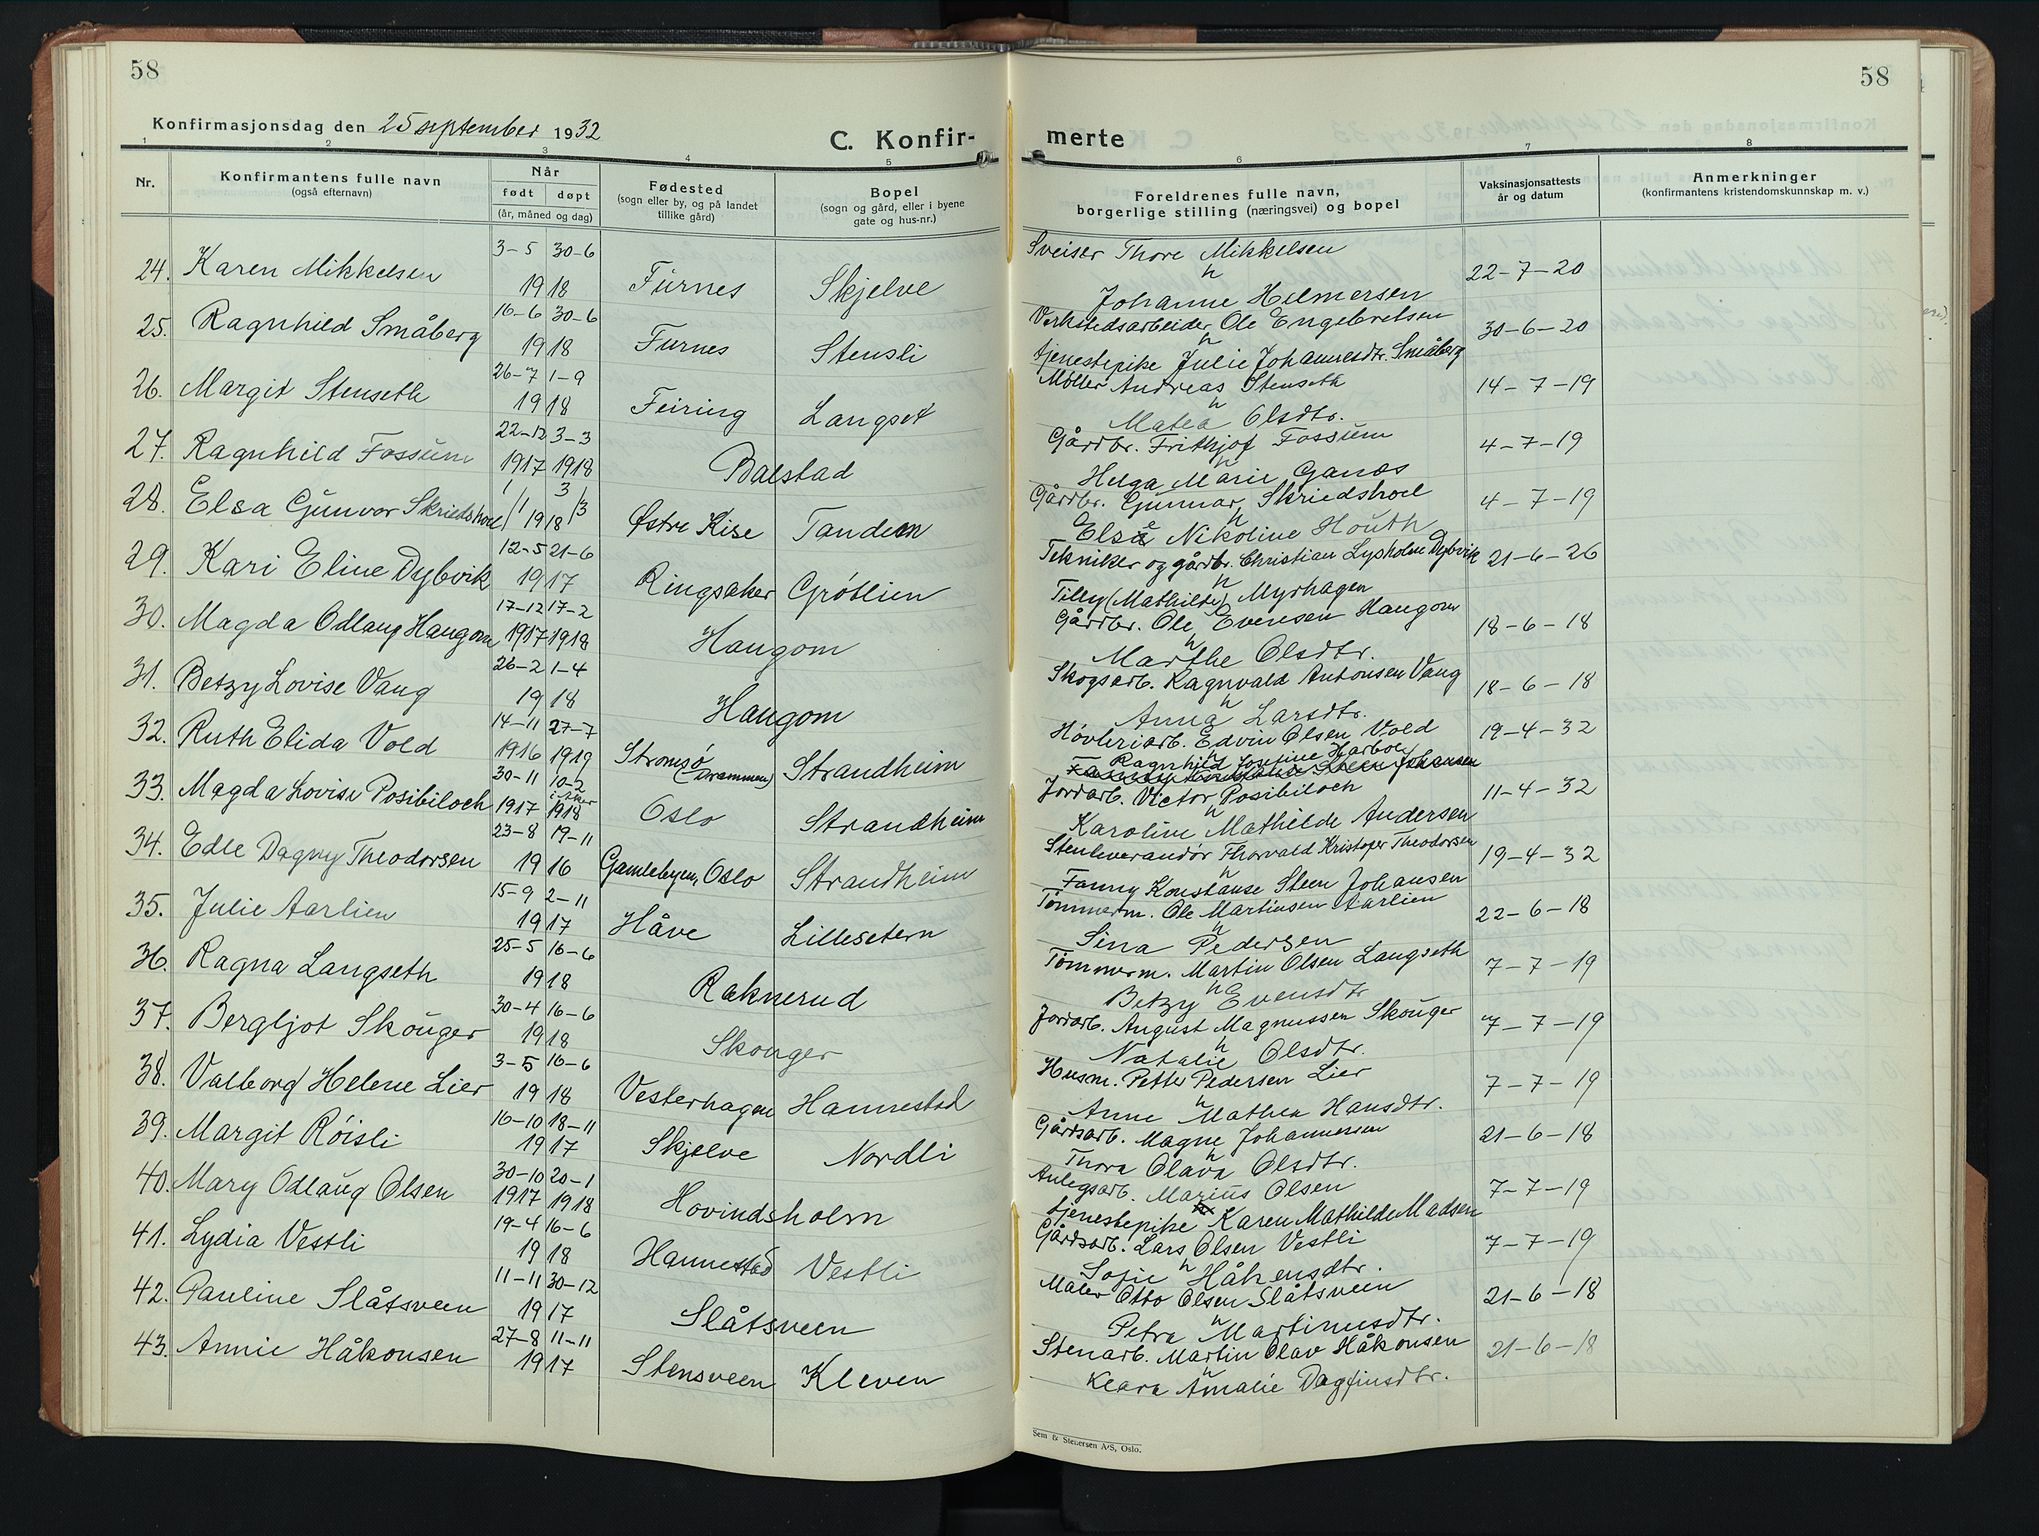 58
58
Konfirmasjonsdag den 25 september 1932
C. Konfir-
merte
1 2 3 4 5 6 7 8
Nr.
Konfirmantens fulle navn
(også efternavn)
Når
født døpt
(år, måned og dag)
Fødested
(sogn eller by, og på landet
tillike gård)
Bopel
(sogn og gård, eller i byene
gate og hus-nr.)
Foreldrenes fulle navn,
borgerlige stilling (næringsvei) og bopel
Vaksinasjonsattests
år og datum
Anmerkninger
(konfirmantens kristendomskunnskap m. v.)
3-5 30-6 Sveiser Thore Mikkelsen
24. Karen Mikkelsen 1918 Furnes Skjelve h 22-7-20
Johanne Helmersen
16-6 30-6 Verkstedsarbeider Ole Engebretsen
25. Ragnhild Småberg 1918 Furnes Stensli h 30-6-20
tjenestepike Julie Johannesdtr. Småberg
26-7 1-9 Møller Andreas Stenseth
26. Margit Stenseth 1918 Feiring Langset h 14-7-19
Matea Olsdtr.
22-12 3-3 Gårdbr. Frithjof Fossum
27. Ragnhild Fossum 1917 1918 Balstad h 4-7-19
Helga Marie Ganæs
1/1 3/3 Gårdbr. Gunnar Skriedshoel
28. Elsa Gunvor Skriedshoel 1918 Østre Kise Tandem h 4-7-19
Else Nikoline Houth
12-5 21-6 Tekniker og gårdbr. Christian Lysholm Dybvik
29. Kari Eline Dybvik 1917 Ringsaker Grötlien h 21-6-26
Tilly (Mathilde) Myrhagen
17-12 17-2 Gårdbr. Ole Evensen Haugom
30. Magda Odlaug Haugom 1917 1918 Haugom h 18-6-18
Marthe Olsdtr.
26-2 1-4 Skogsarb. Ragnvald Antonsen Vang
31. Betzy Lovise Vang 1918 Haugom h 18-6-18
Anna Larsdtr.
14-11 27-7 Høvleriarb. Edvin Olsen Vold
32. Ruth Elida Vold 1916 1919 Strømsö (Drammen) Strandheim h 19-4-32
Ragnhild Jovine Harboe
30-11 10-2 i Aker Jordarb. Victor Posibiloch
33. Magda Lovise Posibiloch 1917 1918 Oslo Strandheim h 11-4-32
Karoline Mathilde Andersen
23-8 19-11 Stenleverandör Thorvald Kristofer Theodorsen
34. Edle Dagny Theodorsen 1916 Gamlebyen, Oslo Strandheim h 19-4-32
Fanny Konstanse Steen Johansen
15-9 2-11 Tømmerm. Ole Martinsen Aarlien
35. Julie Aarlien 1917 Håve Lillesetern h 22-6-18
Sina Pedersen
25-5 16-6 Tömmerm. Martin Olsen Langseth
36. Ragna Langseth 1918 Raknerud h 7-7-19
Betzy Evensdtr
30-4 16-6 Jordarb. August Magnussen Skouger
37. Bergljot Skouger 1918 Skouger h 7-7-19
Natalie Olsdtr.
3-5 16-6 Husm. Petter Pedersen Lier
38. Valborg Helene Lier 1918 Vesterhagen Hannestad h 7-7-19
Anne Mathea Hansdtr.
16-10 18-11 Gårdsarb. Magne Johannessen
39. Margit Röisli 1917 Skjelve Nordli h 21-6-18
Thora Olava Olsdtr.
30-10 20-1 Anlegsarb. Marius Olsen
40. Mary Odlaug Olsen 1917 1918 Hovindsholm 7-7-19
tjenestepike Karen Mathilde Madsen
19-4 16-6 Gårdsarb. Lars Olsen Vestli
41. Lydia Vestli 1918 Hannestad Vestli h 7-7-19
Sofie Håkensdtr.
11-11 30-12 Maler Otto Olsen Slåtsveen
42. Pauline Slåtsveen 1917 Slåtsveen h 21-6-18
Petra Martinusdtr.
27-8 11-11 Stenarb. Martin Olav Håkonsen
43. Annie Håkonsen 1917 Stensveen Kleven h 21-6-18
Klara Amalie Dagfinsdtr.
Sem & Stenersen A/S, Oslo.